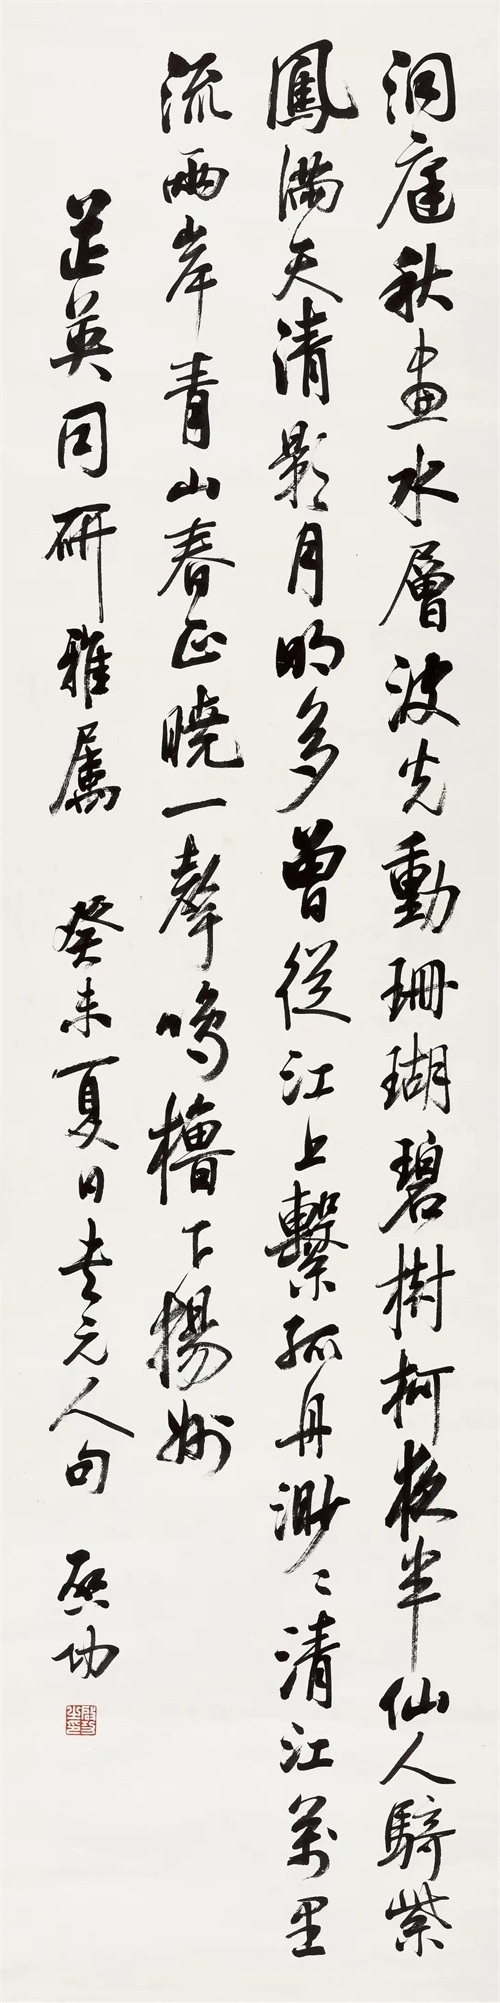 洞庭秋盡水層波光動珊瑚碧樹柯夜半仙人騎紫
鳳滿天清影月明多曾從江上繫孤舟渺〻清江萬里
流兩岸青山春正曉一聲鳴櫓下揚州
芷英同研雅屬 癸未夏日書元人句 啓功